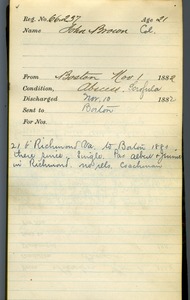 Reg. No. 66237 Age 21
Name John Brown Col.
From Boston Nov. 1 1882
Condition, Abscess, Scrofula
Discharged Nov. 10 1882
Sent to Boston
For Nos.
21 b Richmond Va. to Boston 1880
there since. Single. Par
in Richmond. no rels. Coachman